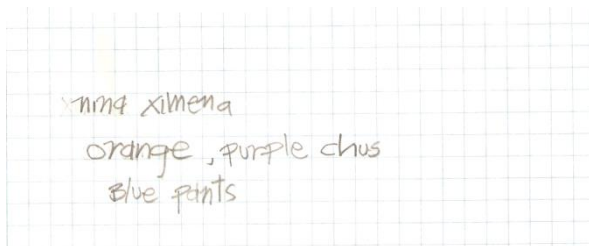 nina ximena
orange, purple chus
Blue pants